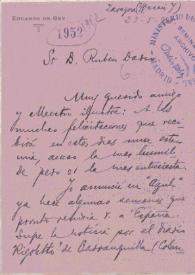 EDUARDO DE ORY
Zaragoza
23-5-
1952
MINISTERIO
SEMINARIO
ARCHIVO
MADRID
Sr D. Rubén Darío
Muy querido amigo
y Maestro ilustre: A las
muchas felicitaciones que reci-
birá en estos días una esta
mía, acaso la más humil-
de pero sí la más entusiasta.
Ya anuncié en Azul
ya hace algunas semanas que
pronto vendría V. a España.
Supe la noticia por el Diario
Rigoletto de Barranquilla (Colom